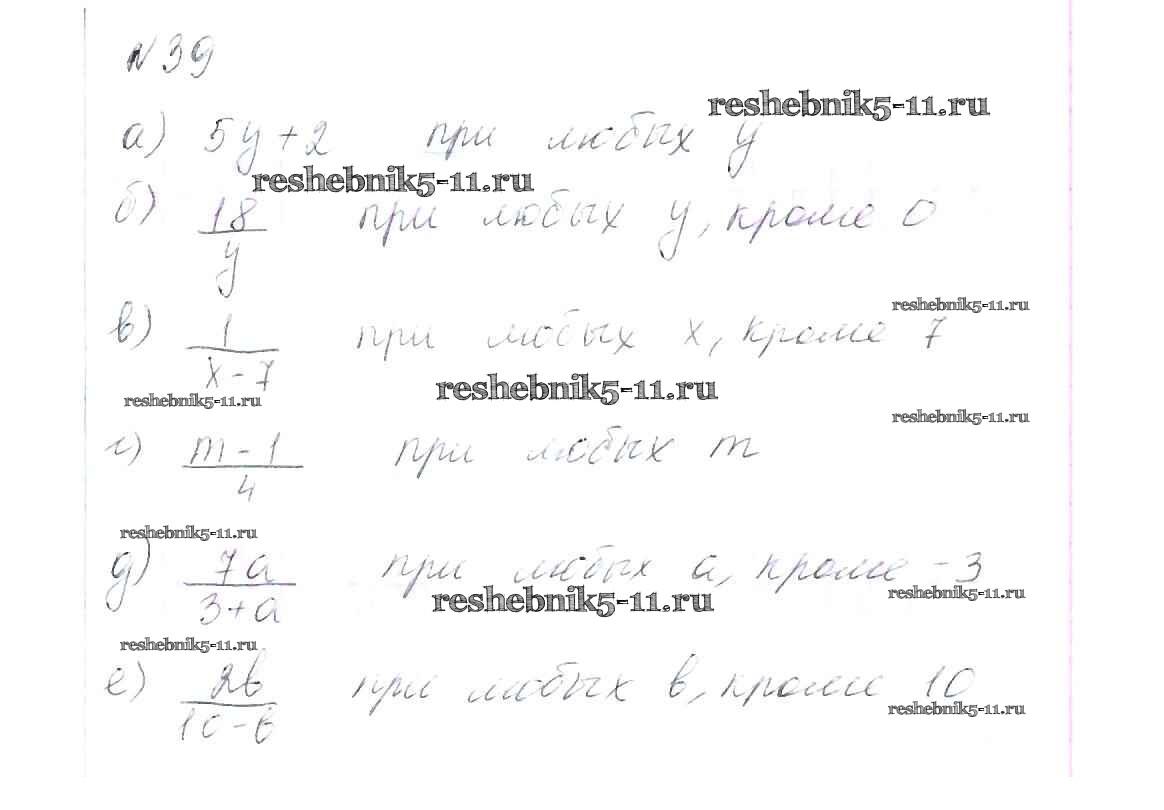 № 39
reshebnik5-11.ru
а) 5y + 2 при любых y
reshebnik5-11.ru
б) 18/y при любых y, кроме 0
reshebnik5-11.ru
в) 1/(x - 7) при любых x, кроме 7
reshebnik5-11.ru
reshebnik5-11.ru
reshebnik5-11.ru
г) (m - 1)/4 при любых m
reshebnik5-11.ru
д) 7a/(3 + a) при любых a, кроме -3
reshebnik5-11.ru
reshebnik5-11.ru
reshebnik5-11.ru
е) 2b/(10 - b) при любых b, кроме 10
reshebnik5-11.ru